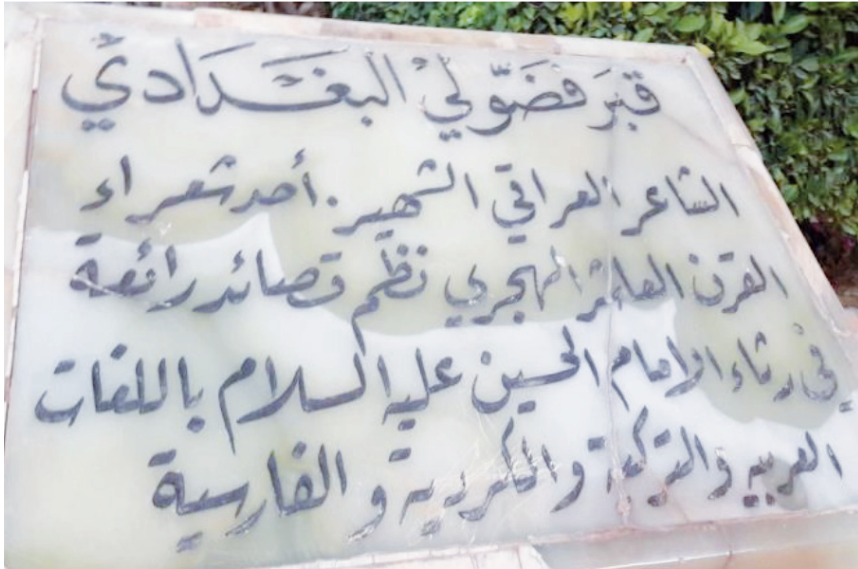 قبر فضولي البغدادي
الشاعر العراقي الشهير. أحد شعراء
القرن العاشر الهجري نظم قصائد رائعة
في رثاء الامام الحسين عليه السلام باللغات
العربيه والتركية والكردية و الفارسية